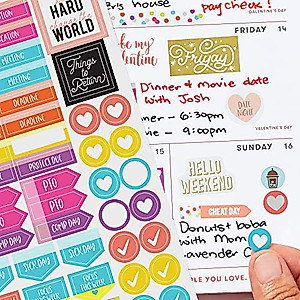 HARD
WORLD
Things
to
Return
MEETING
MEETING
DEADLINE
DEADLINE
PROJECT DUE
PTO
PTO
COMP DAY
COMP DAY
SICK DAY
SICK DAY
FOCUS
THIS WEEK
house
pay check!
GALENTINE'S DAY
be my
Valentine
FRIDAY 14
Friyay
Dinner & movie date
with Josh
DATE
NIGHT
VALENTINE'S DAY
- 6:30pm
movie - 9:00pm
SUNDAY 16
HELLO
WEEKEND
CHEAT DAY
Donuts + boba
with Mom
Lavender
PLE YOU LOVE.